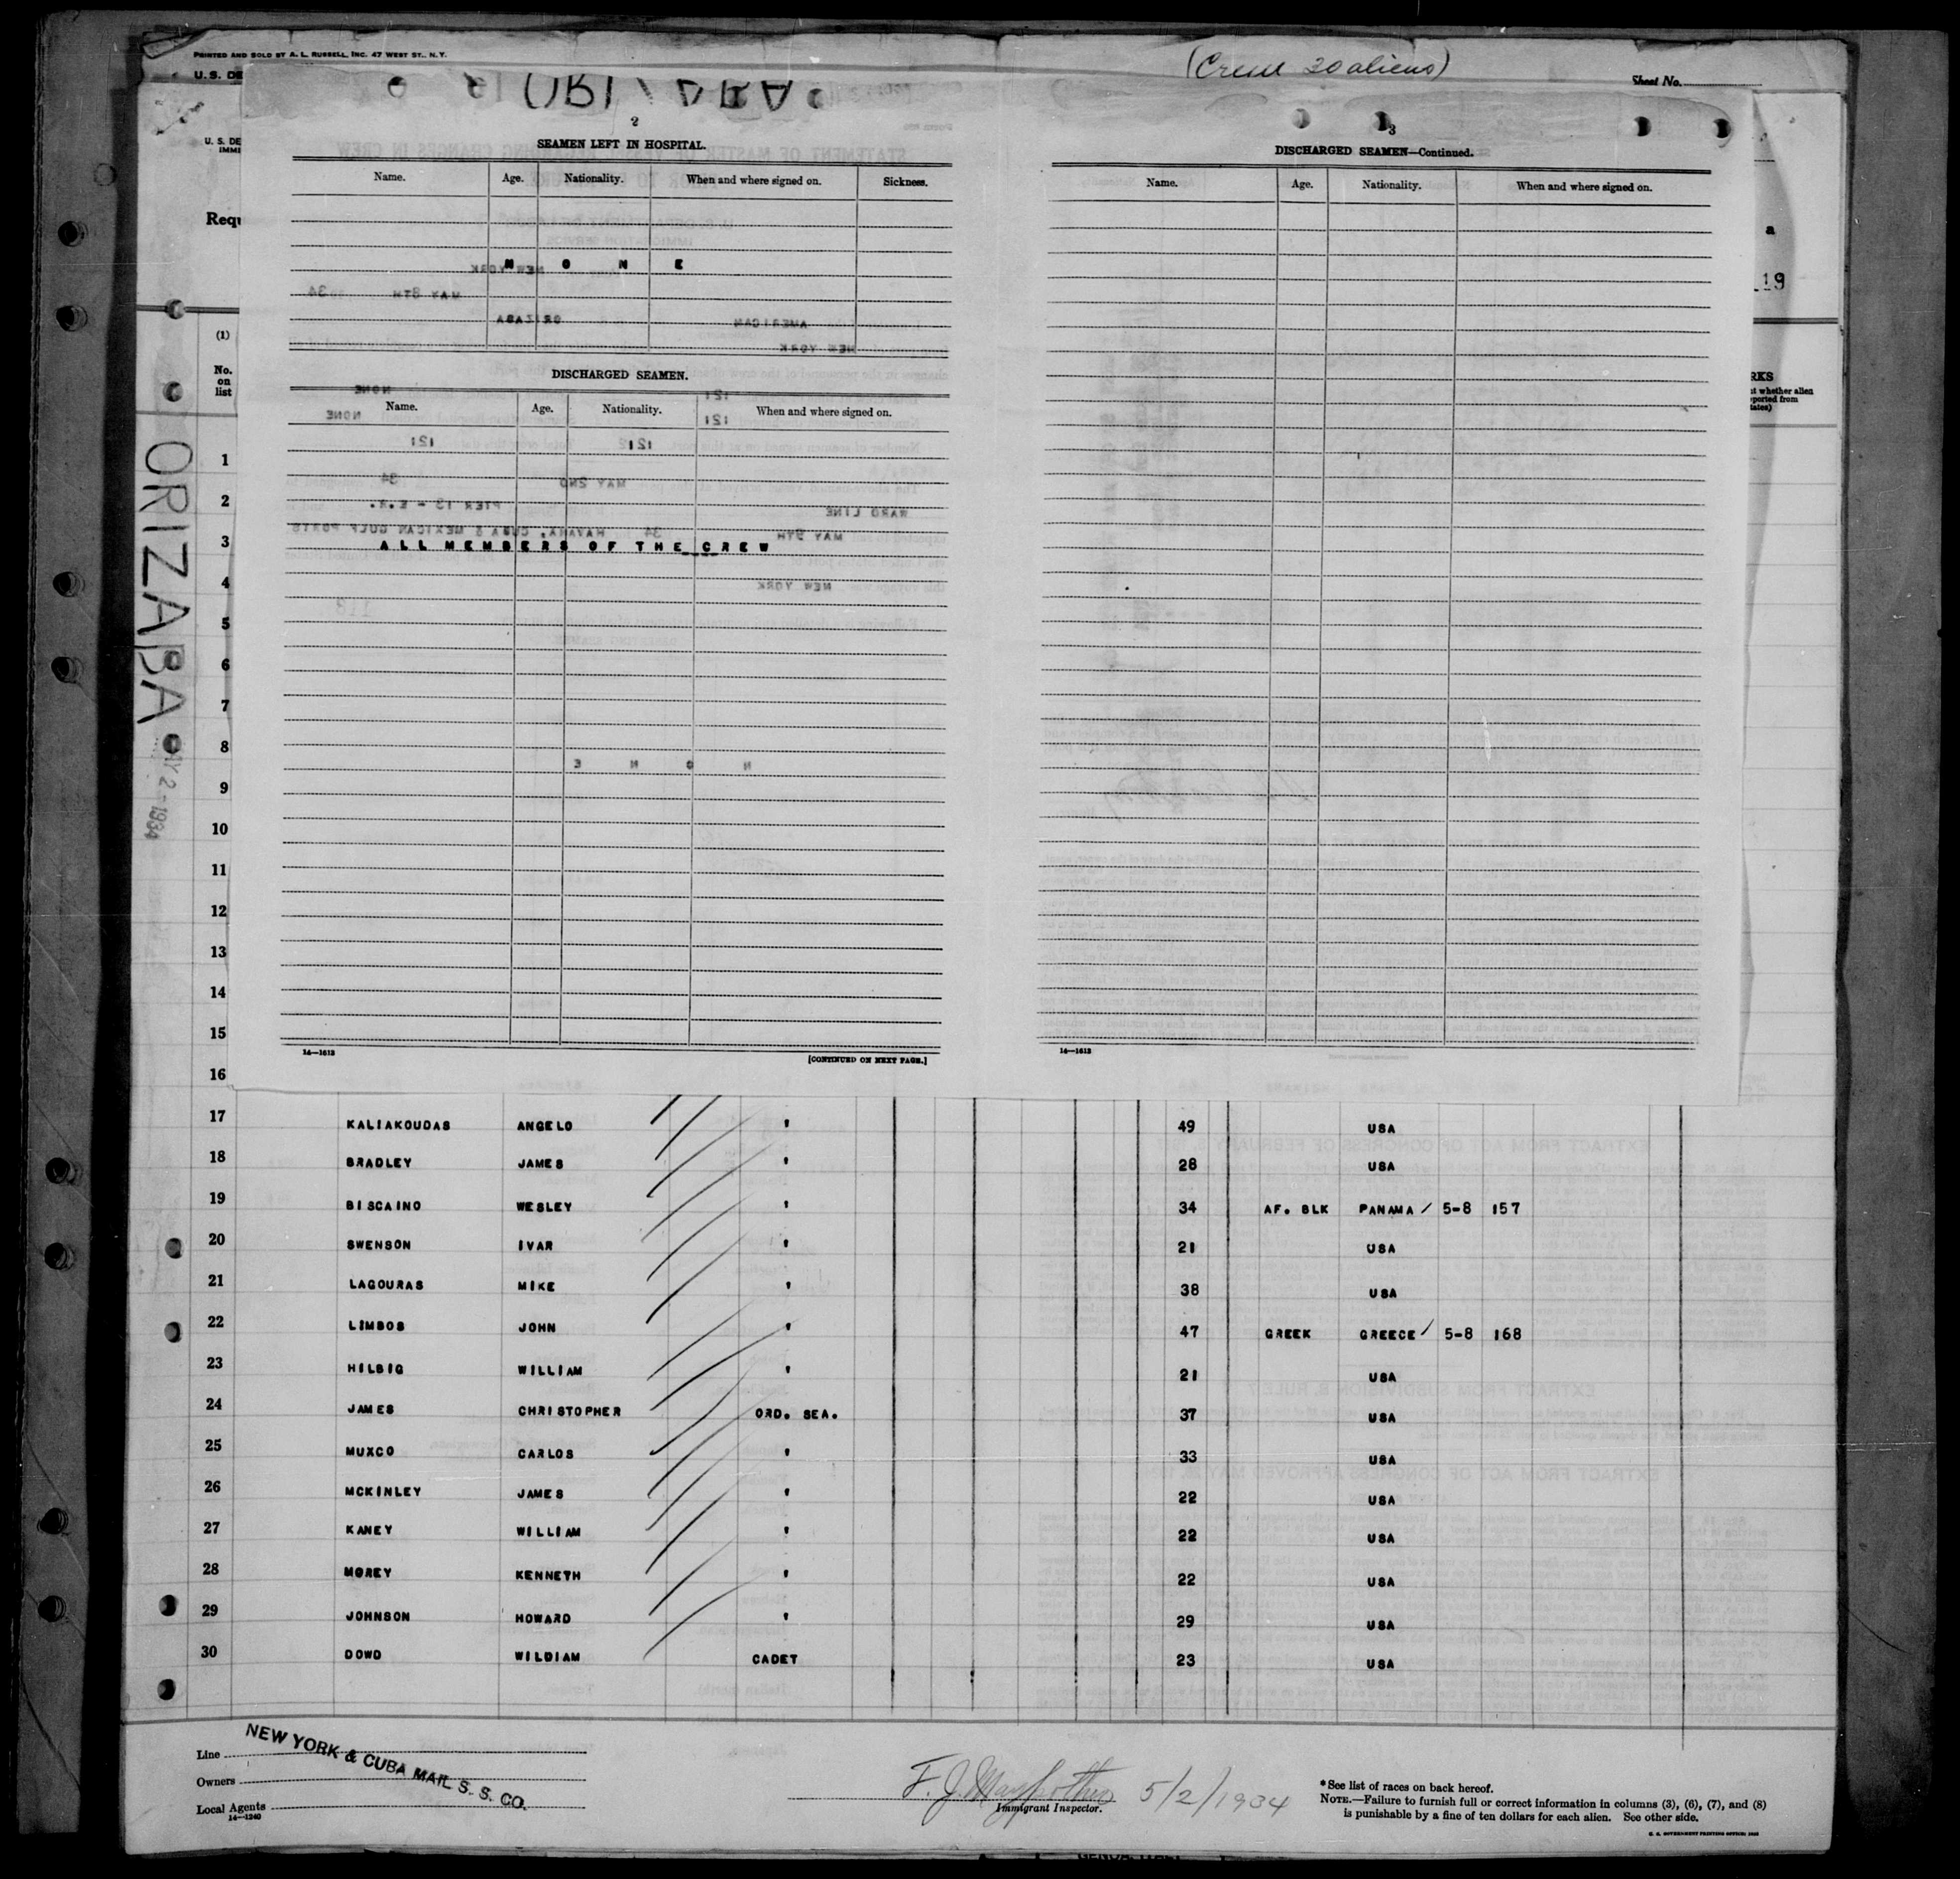 PRINTED AND SOLD BY A. L. RUSSELL, INC. 47 WEST ST., N.Y.
U.S. DE
(Crew 30 aliens)
Sheet No.
ORIZABA
2
SEAMEN LEFT IN HOSPITAL.
Name. Age. Nationality. When and where signed on. Sickness.
N O N E
DISCHARGED SEAMEN.
Name. Age. Nationality. When and where signed on.
ALL MEMBERS OF THE CREW
14—1613
[CONTINUED ON NEXT PAGE.]
3
DISCHARGED SEAMEN—Continued.
Name. Age. Nationality. When and where signed on.
14—1613
U.S. DE
IMMI
Requ
a
19
(1)
No. on list
RKS
whether alien
ported from
tates)
ORIZABA
MAY 2-1934
1
2
3
4
5
6
7
8
9
10
11
12
13
14
15
16
17 KALIAKOUDAS ANGELO " 49 USA
18 BRADLEY JAMES " 28 USA
19 BISCAINO WESLEY " 34 AF. BLK PANAMA / 5-8 157
20 SWENSON IVAR " 21 USA
21 LAGOURAS MIKE " 38 USA
22 LIMBOS JOHN " 47 GREEK GREECE / 5-8 168
23 HILBIG WILLIAM " 21 USA
24 JAMES CHRISTOPHER ORD. SEA. 37 USA
25 MUXCO CARLOS " 33 USA
26 MCKINLEY JAMES " 22 USA
27 KANEY WILLIAM " 22 USA
28 MOREY KENNETH " 22 USA
29 JOHNSON HOWARD " 29 USA
30 DOWD WILDIAM CADET 23 USA
Line
Owners
Local Agents
14—1240
NEW YORK & CUBA MAIL S. S. CO.
F. J. 5/2/1934
Immigrant Inspector.
*See list of races on back hereof.
NOTE.—Failure to furnish full or correct information in columns (3), (6), (7), and (8)
is punishable by a fine of ten dollars for each alien. See other side.